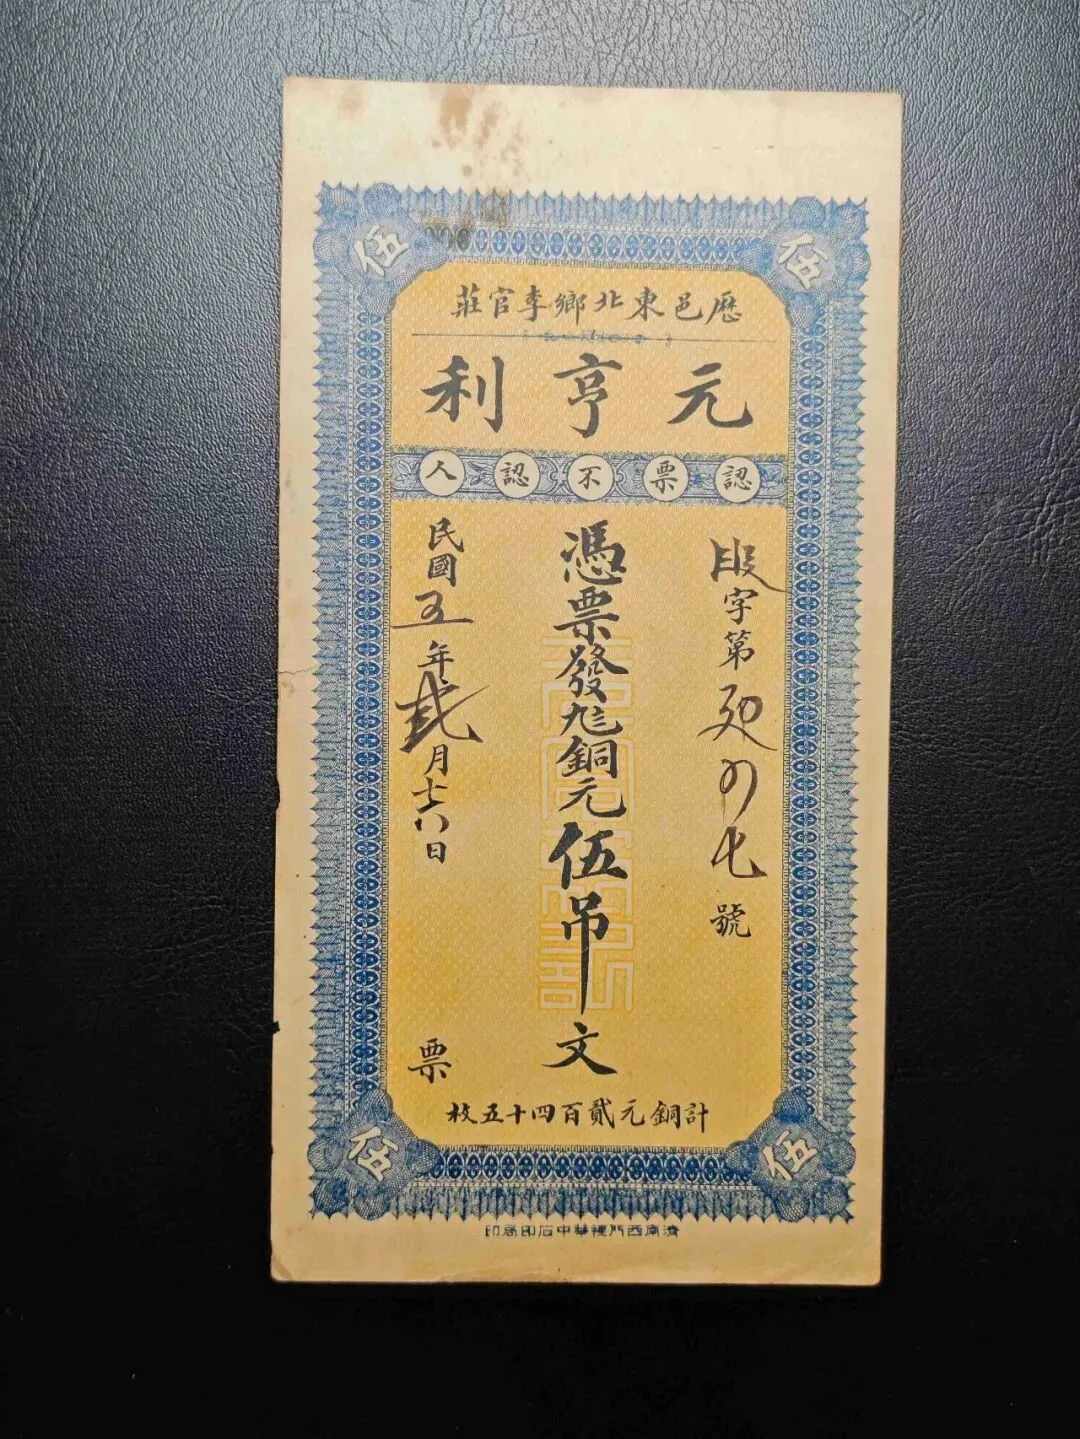 伍
伍
歷邑東北鄉李官莊
元亨利
認票不認人
字第
號
憑票發九三銅元伍吊文
民國五年貳月十六日
票
計銅元貳百四十五枚
伍
伍
濟南西門裡華中石印局印